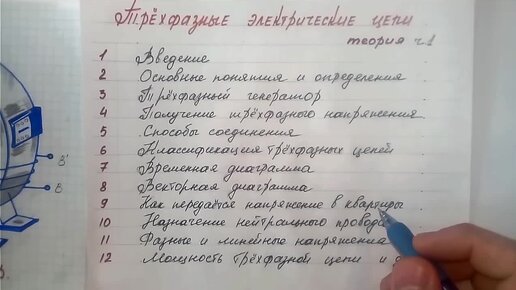 Трёхфазные электрические цепи
теория ч.1
1 Введение
2 Основные понятия и определения
3 Трёхфазный генератор
4 Получение трёхфазного напряжения
5 Способы соединения
6 Классификация трёхфазных цепей
7 Временная диаграмма
8 Векторная диаграмма
9 Как передаётся напряжение в квартиры
10 Назначение нейтрального провода
11 Фазные и линейные напряжения
12 Мощность трёхфазной цепи и
B'
B